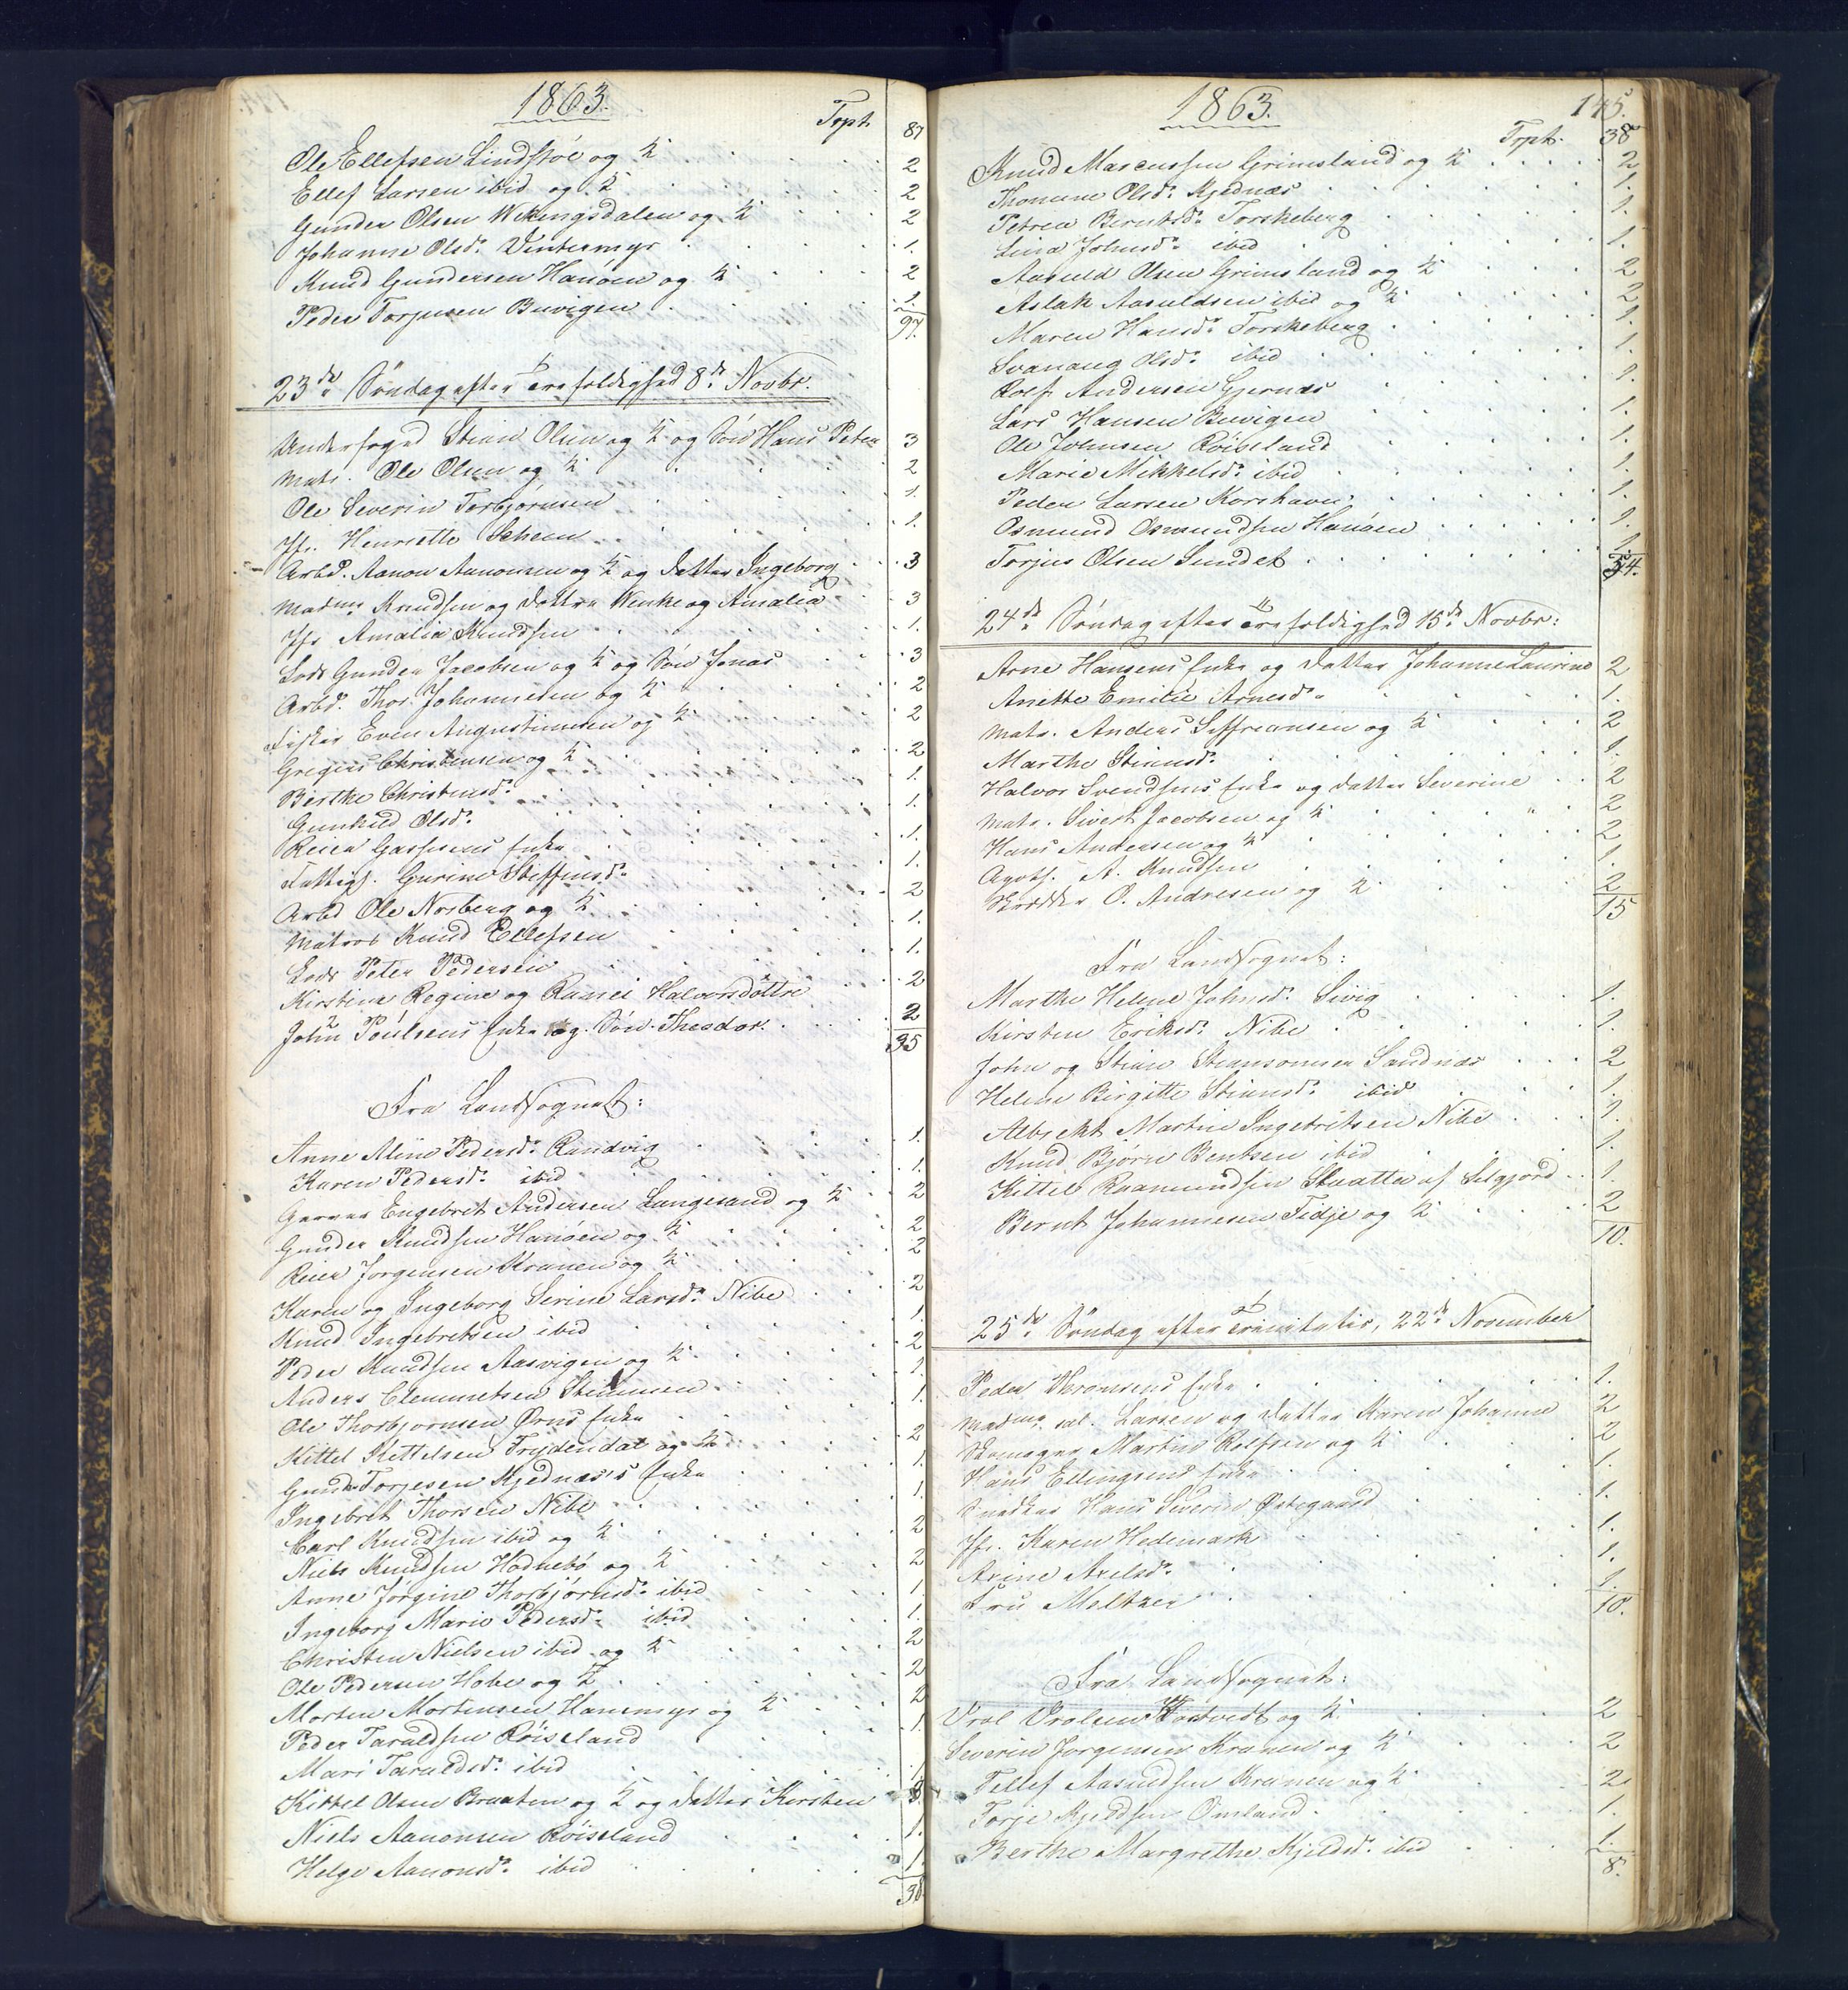 1863.
Trpt. 87
Ole Ellefsen Lindstöl og K 2
Ellef Larsen ibid og K 2
Gunder Olsen Wikingsdalen og K 2
Johanne Olsd: Vintermyr 1.
Knud Gundersen Hanöen og K 2
Peder Torjusen Buvigen 1.
97.
23de Söndag efter Trefoldighed 8de Novbr.
Underfoged Stian Olsen og K og Sön Hans Peter 3
Matr. Ole Olsen og K 2
Ole Severin Torbjörnsen 1.
Jfr. Henriette Scheen 1.
Arbd. Aanon Aanonsen og K og Datter Ingeborg 3
Madme Knudsen og Döttre Wenke og Amalia 3
Jfr Amalia Knudsen 1.
Lods Gunder Jacobsen og K og Sön Jonas 3
Arbd. Thos. Johannesen og K 2
Fisker Even Augustinusen og K 2
Gregers Christensen og K 2
Birthe Christensd: 1.
Gunhild Olsd: 1.
Reier Gassesens Enke 1.
Fattigl. Gurine Steffensd: 1.
Arbd Ole Norberg og K 2
Matros Knud Ellefsen 1.
Lods Peter Pedersen 1.
Kirstine Regine og Ramei Halvorsdöttre 2
John Poulsens Enke og Sön Theodor. 2
35
Fra Landsognet:
Anne Aline Pedersd: Randvig 1.
Karen Pedersd: ibid 1.
Garver Engebret Andersen Langesand og K 2
Gunder Knudsen Hanöen og K 2
Reier Jörgensen Kranen og K 2
Karen og Ingeborg Serine Larsd: Nibe 2
Knud Ingebretsen ibid 1.
Peder Knudsen Aasvigen og K 2
Anders Clemmetsen 1.
Ole Thorbjörnsen Örns Enke 1.
Kittel Kettelsen Frydendal og K 2
Gund: Torjesen Kjednæs's Enke 1.
Ingebret Thorsen Nibe 1.
Carl Knudsen ibid og K 2
Niels Knudsen Hodnebö og K 2
Anne Jörgine Thorbjörnsd: ibid 1
Ingeborg Marie Pedersd: ibid 1.
Christen Nielsen ibid og K 2
Ole Pedersen Hobe og K 2
Morten Mortensen Hanemyr og K 2
Peder Taraldsen Röiseland 1.
Mari Taraldsd: ibid 1
Kittel Olsen Braaten og K og Datter Kirsten 3
Niels Aanonsen Röiseland 1.
Helge Aanonsd: ibid 1.
38
1863.
145.
Trpt. 38
Knud Marcussen Grimsland og K 2
Thomine Olsd: Kjednæs 1.
Petrea Berntsd: Torskeberg 1.
Lina Johnsd: ibid 1.
Aasuld Olsen Grimsland og K 2
Aslak Aasuldsen ibid og K 2
Maren Hansd: Torskeberg 1.
Svanaug Olsd: ibid 1.
Rolf Andersen Gjernæs 1.
Lars Hansen Buvigen 1.
Ole Johnsen Röiseland 1.
Marie Mikkelsd: ibid 1.
Peder Larsen Korshavn 1.
Osmund Osmundsen Hanöen 1.
Torjus Olsen Sundet 1.
54.
24de Söndag efter Trefoldighed 15de Novbr:
Arne Hansens Enke og Datter Johanne Laurine 2
Anette Emilie Arnesd: 1.
Matr. Anders Siffriansen og K 2
Marthe Stiansd: 1.
Halvor Svendsens Enke og Datter Severine 2
Matr. Sivert Jacobsen og K 2
Hans Andersen og K 2
Agoth. A. Knudsen 1.
Skrædder O. Andresen og K 2
15
Fra Landsognet:
Marthe Helene Johnsd: Sivig 1.
Kirsten Eriksd: Nibe 1.
John og Stian Stiansönner Sandnæs 2
Helene Birgitte Stiansd: ibid 1.
Albrekt Martin Ingebritsen Nibe 1.
Knud Björn Bentsen ibid 1.
Kittel Raamundsen Skaatta af Silgjord 1.
Bernt Johannesen Fidje og K 2
10.
25de Söndag efter Trinitatis, 22de November
Peder Thromsens Enke 1.
Madme sal. Larsen og Datter Karen Johanne 2
Skomager Martin Rolfsen og K 2
Hans Ellingsens Enke 1.
Snedker Hans Severin Östegaard 1.
Jfr. Karen Hedemark 1.
Arine Axelsd: 1.
Fru Meltzer 1.
10.
Fra Landsognet:
Vrol Vrolsen Hartvedt og K 2
Severin Jörgensen Kranen og K 2
Tellef Aasuldsen Kranen og K 2
Torje Kjeldsen Omland. 1.
Berthe Margrethe Kjeldsd: ibid 1.
8.